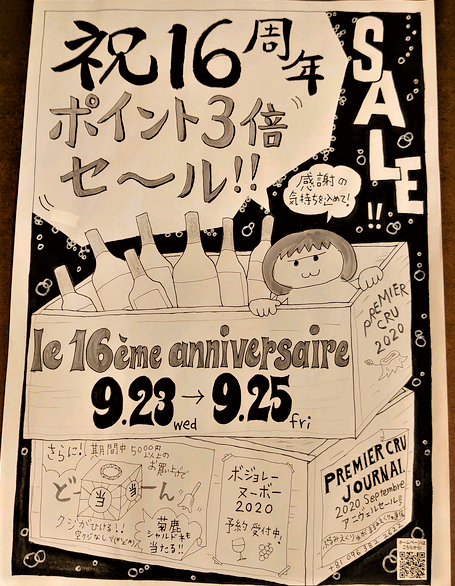 祝16周年
ポイント3倍
セール!!
SALE!!
感謝の
気持ちを込めて!
PREMIER
CRU
2020
le 16ème anniversaire
9.23 wed → 9.25 fri
さらに!
期間中5000円
以上の
お買い上げで
どーん
当
当
クジがひける!!
菊鹿
シャルドネも
当たる!!
ボジョレー
ヌーボー
2020
予約受付中!
PREMIER CRU
JOURNAL
2020 Septembre
アニヴェルセール号
ホームページは
こちらから!